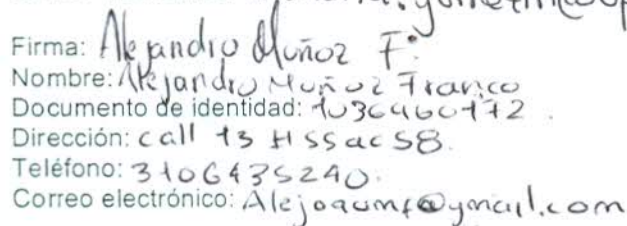 Firma: Alejandro Muñoz F.
Nombre: Alejandro Muñoz Franco
Documento de identidad: 1036460172.
Dirección: call 13 # 55ac 58.
Teléfono: 3106435240.
Correo electrónico: